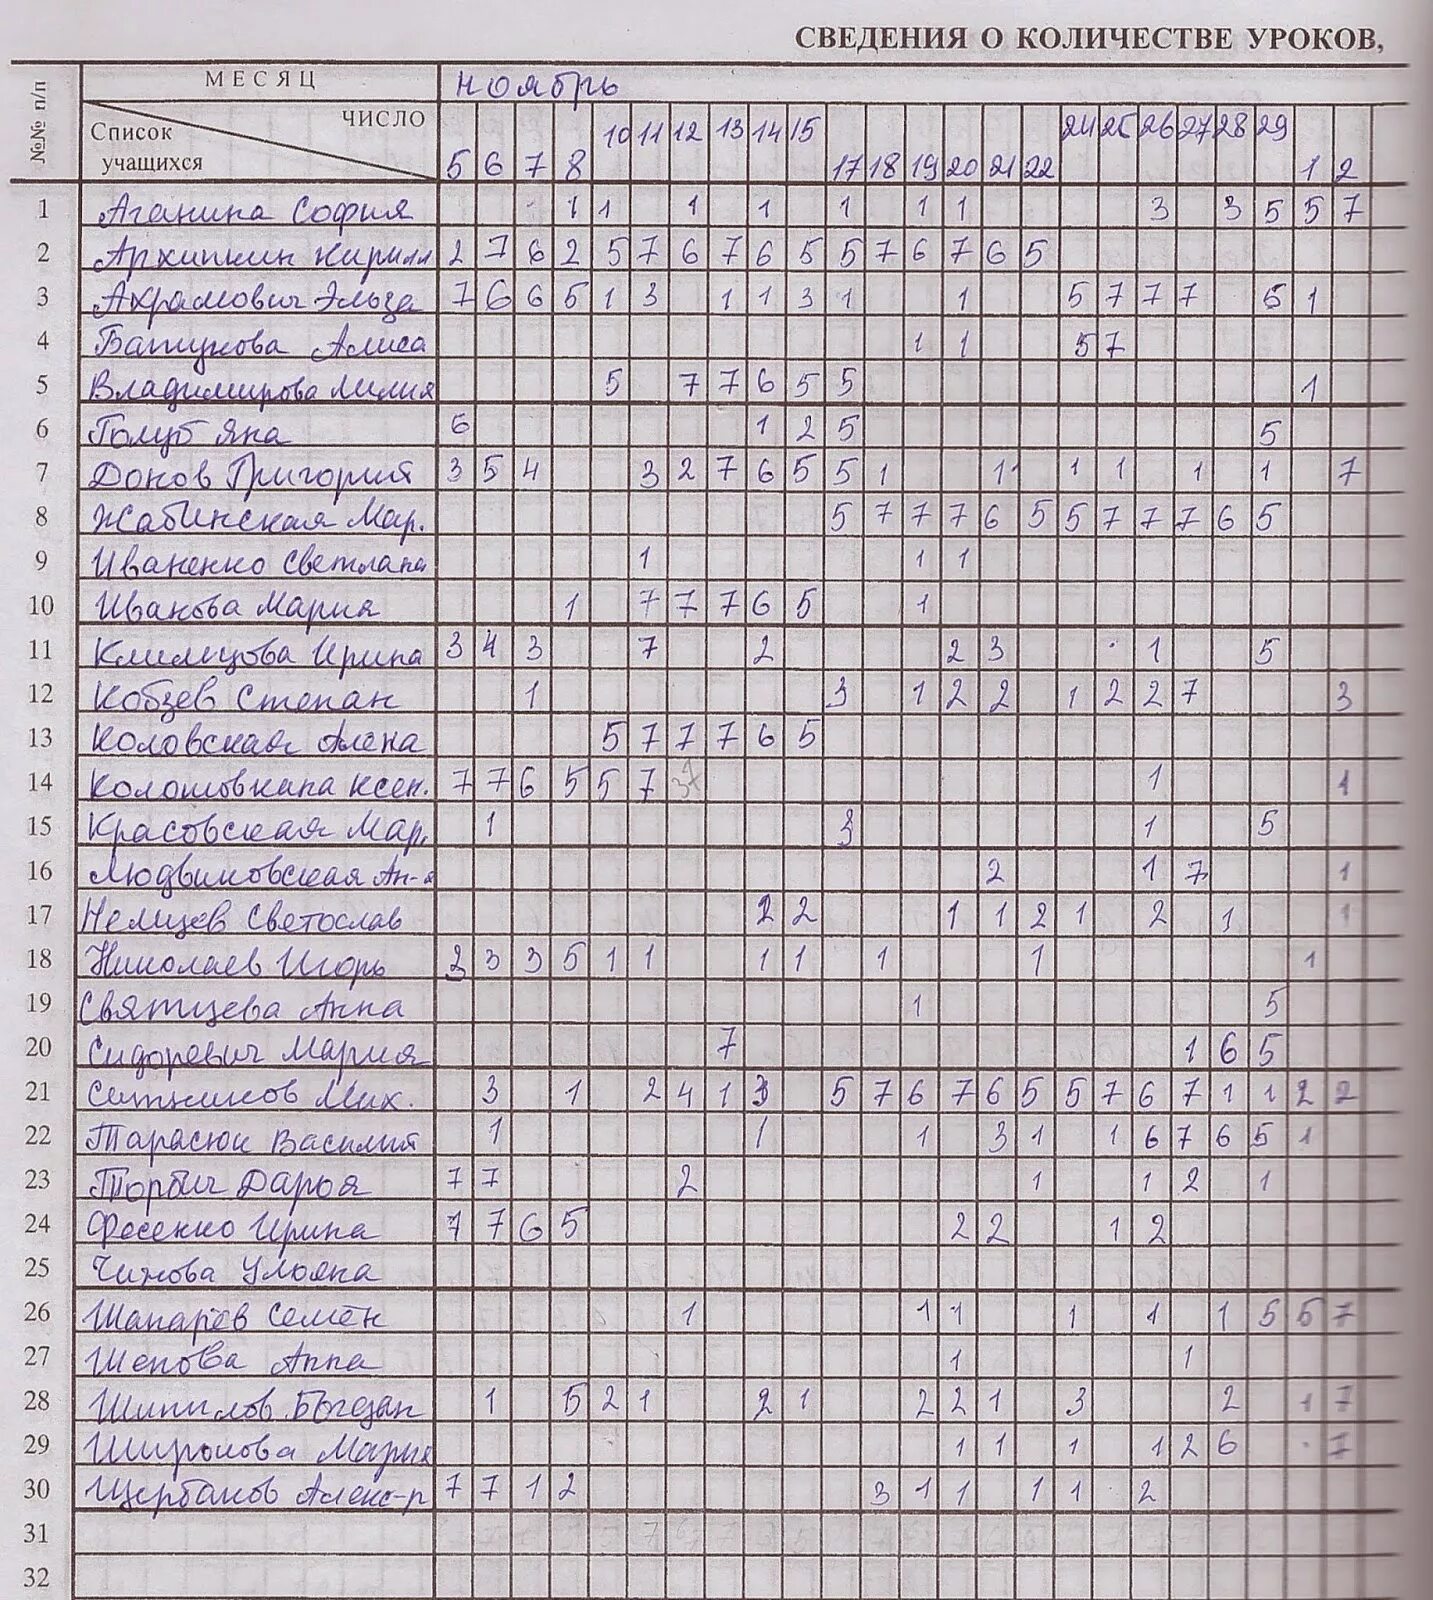 СВЕДЕНИЯ О КОЛИЧЕСТВЕ УРОКОВ,
№№ п/п МЕСЯЦ ноябрь
ЧИСЛО
Список учащихся
5 6 7 8 10 11 12 13 14 15 17 18 19 20 21 22 24 25 26 27 28 29 1 2
1 Аганина София 1 1 1 1 1 1 1 3 3 5 5 7
2 Архипкин Кирилл 2 7 6 2 5 7 6 7 6 5 5 7 6 7 6 5
3 Ахрамович Эльза 7 6 6 5 1 3 1 1 3 1 1 5 7 7 7 6 1
4 Батукова Алиса 1 1 5 7
5 Владимирова Лилия 5 7 7 6 5 5 1
6 Голуб Яна 6 1 2 5 5
7 Доков Григорий 3 5 4 3 2 7 6 5 5 1 11 1 1 1 1 7
8 Жабинская Мар. 5 7 7 7 6 5 5 7 7 7 6 5
9 Иваненко Светлана 1 1 1
10 Иванова Мария 1 7 7 7 6 5 1
11 Климцова Ирина 3 4 3 7 2 2 3 1 5
12 Кобзев Степан 1 3 1 2 2 1 2 2 7 3
13 Коловская Алена 5 7 7 7 6 5
14 Колошовкина Ксен. 7 7 6 5 5 7 1 1
15 Красовская Мар. 1 3 1 5
16 Людвиковская Ан-я 2 1 7 1
17 Немцев Светослав 2 2 1 1 2 1 2 1 1
18 Николаев Игорь 2 3 3 5 1 1 1 1 1 1 1
19 Святцева Анна 1 5
20 Сидоревич Мария 7 1 6 5
21 Ситников Мих. 3 1 2 4 1 3 5 7 6 7 6 5 5 7 6 7 1 1 2 2
22 Тарасюк Василий 1 1 1 3 1 1 6 7 6 5 1
23 Торбич Дарья 7 7 2 1 1 2 1
24 Фесенко Ирина 7 7 6 5 2 2 1 2
25 Чижова Ульяна
26 Шапарёв Семён 1 1 1 1 1 1 5 5 7
27 Шенова Анна 1 1
28 Шипилов Богдан 1 5 2 1 2 1 2 2 1 3 2 1 7
29 Широкова Мария 1 1 1 1 2 6 7
30 Щербаков Алекс-р 7 7 1 2 3 1 1 1 1 2
31
32